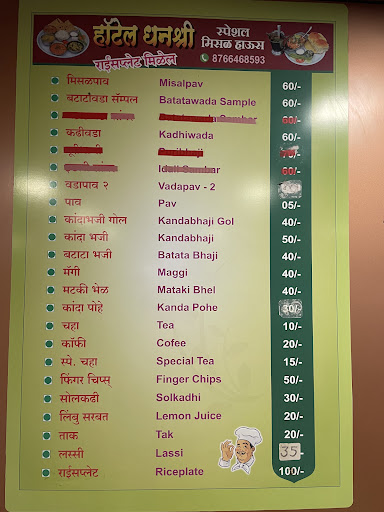 हॉटेल धनश्री
स्पेशल
मिसळ हाऊस
राईसप्लेट मिळेल
8766468593
मिसळपाव Misalpav 60/-
बटाटावडा सॅम्पल Batatawada Sample 60/-
60/-
कढीवडा Kadhiwada 60/-
वडापाव २ Vadapav - 2
पाव Pav 05/-
कांदाभजी गोल Kandabhaji Gol 40/-
कांदा भजी Kandabhaji 50/-
बटाटा भजी Batata Bhaji 40/-
मॅगी Maggi 40/-
मटकी भेळ Mataki Bhel 40/-
कांदा पोहे Kanda Pohe 30/-
चहा Tea 10/-
कॉफी Cofee 20/-
स्पे. चहा Special Tea 15/-
फिंगर चिप्स् Finger Chips 50/-
सोलकढी Solkadhi 30/-
लिंबु सरबत Lemon Juice 20/-
ताक Tak 20/-
लस्सी Lassi 35
राईसप्लेट Riceplate 100/-